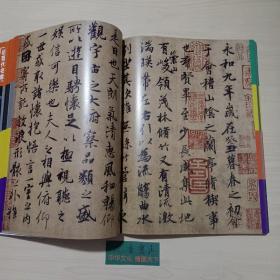 永和九年歲在癸丑暮春之初會
于會稽山陰之蘭亭脩稧事
也群賢畢至少長咸集此地
有崇山峻領茂林脩竹又有清流激
湍暎帶左右引以為流觴曲水
列坐其次雖無絲竹管弦之
是日也天朗氣清惠風和暢仰
觀宇宙之大俯察品類之盛
所以遊目騁懷足以極視聽之
娛信可樂也夫人之相與俯仰
一世或取諸懷抱悟言一室之內
或因寄所託放浪形骸之外雖
中华文化